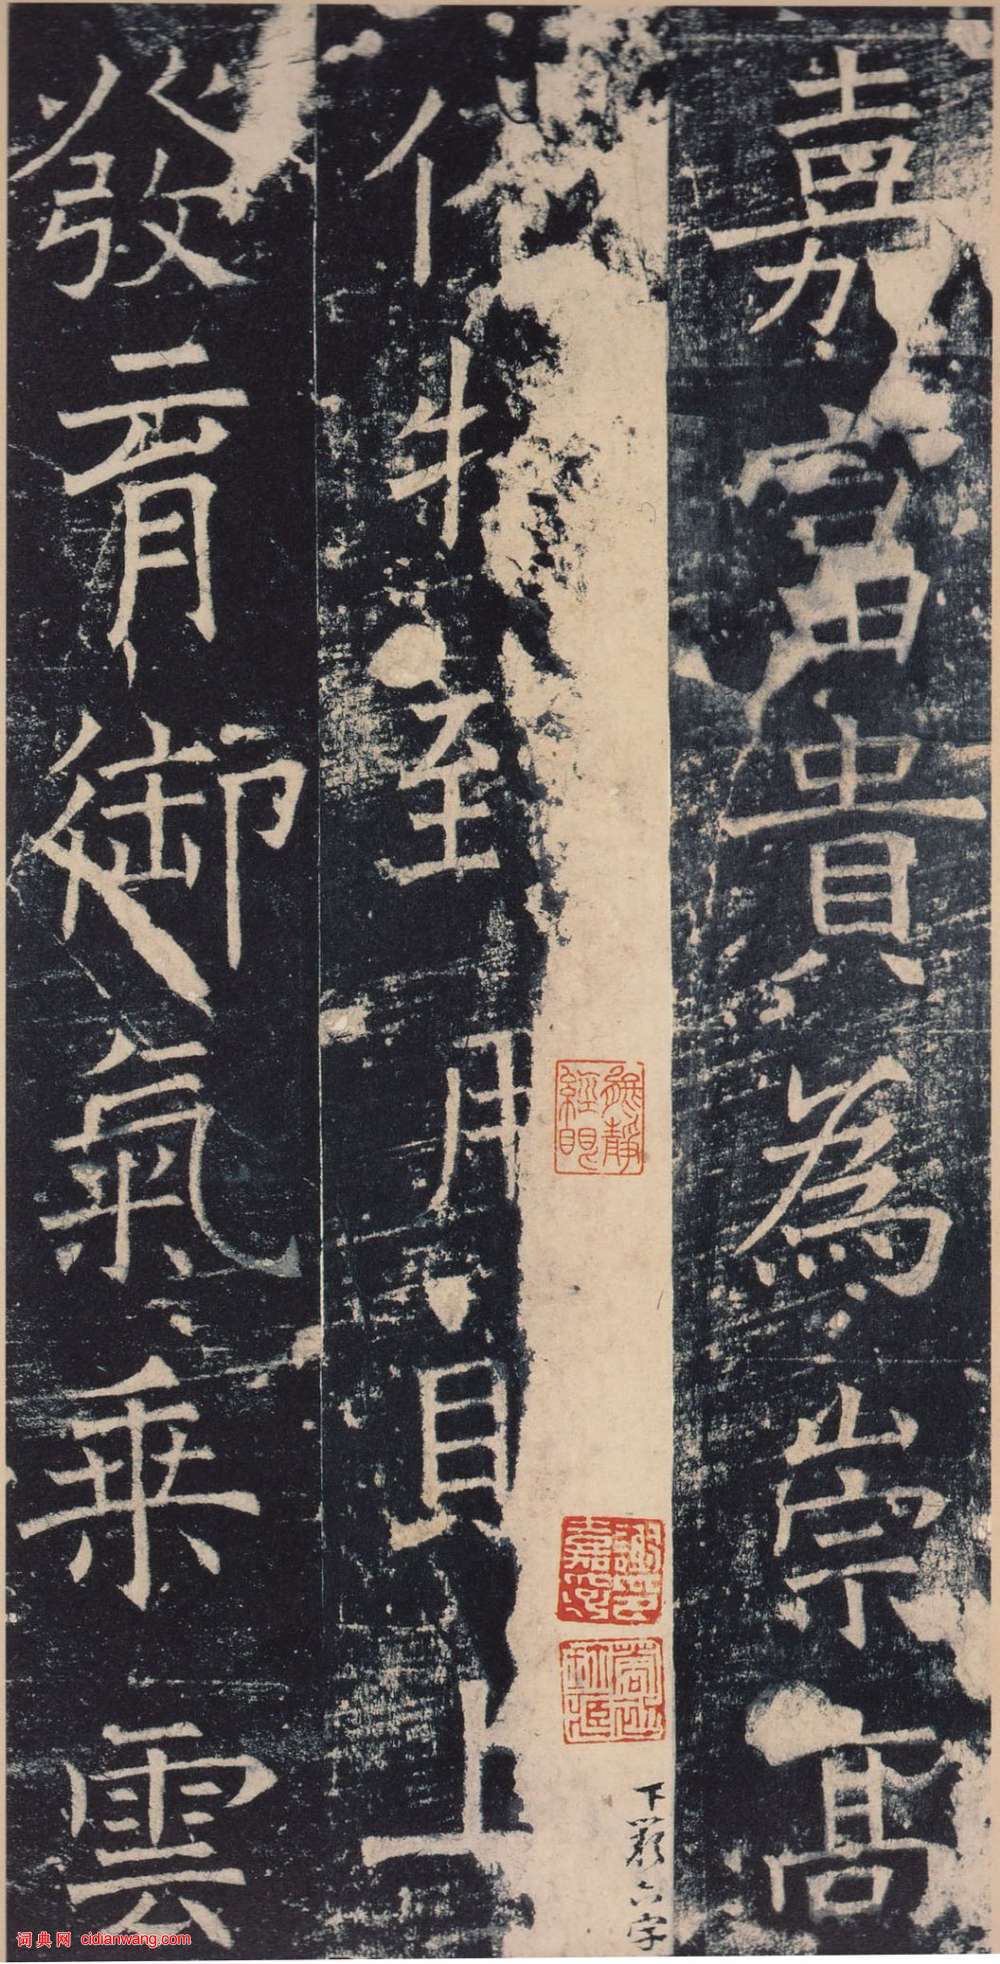 嘉富貴為崇高
至用上
發育御氣乘雲
下缺六字
词典网 cidianwang.com